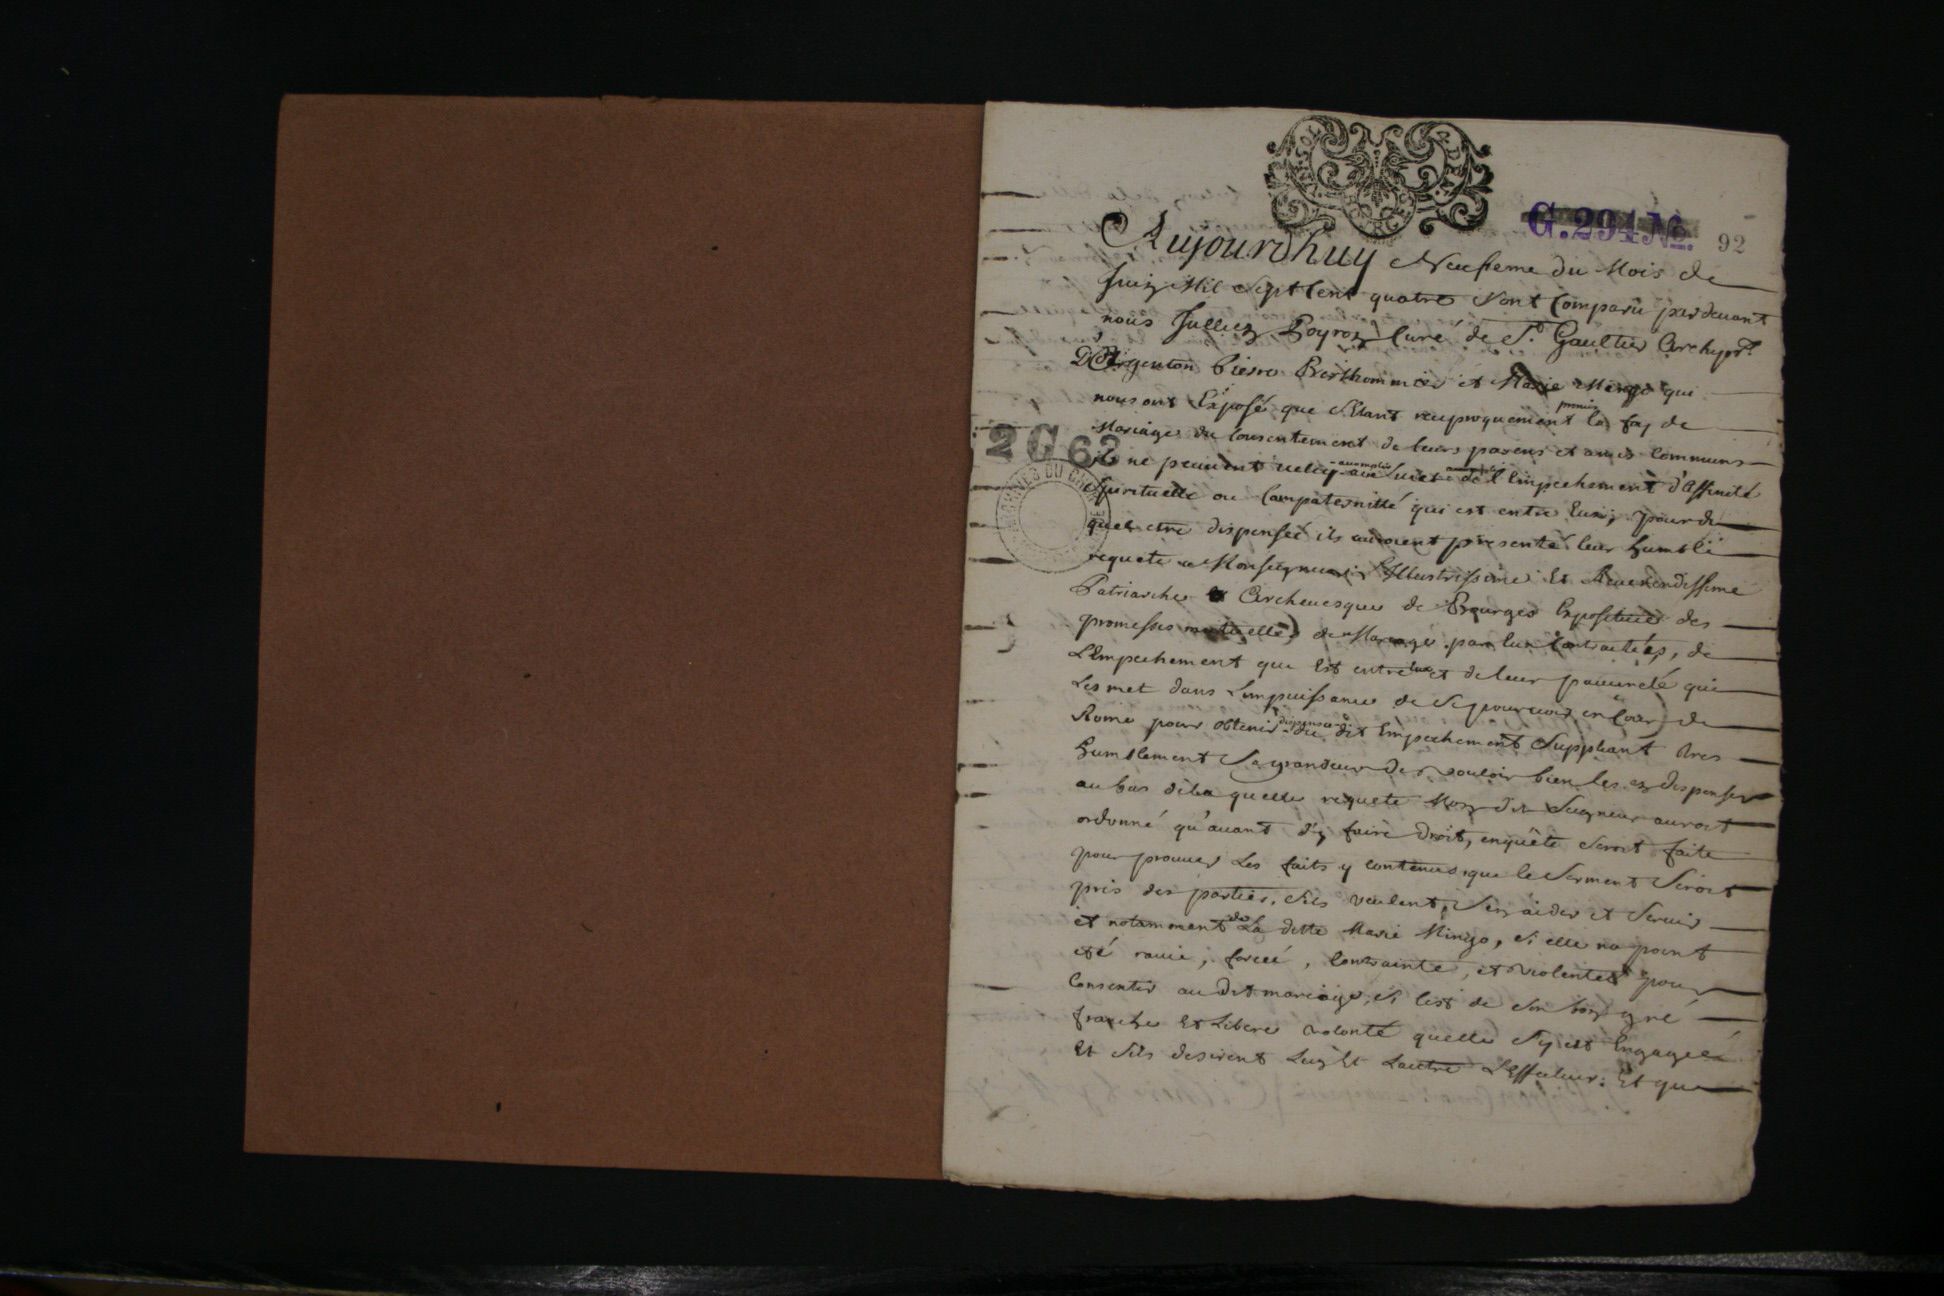 G.294 No. 92
Aujourdhuy Neufieme du Mois de
Juin Mil Sept Cent quatre Sont Comparu pardevant
nous Jullien Poyron Curé de St. Gaultier Archiprt.
D'Argenton Pierre Berthommier et Marie Mingo qui
nous ont Exposé que S'Etant reciproquement promis la foy de
Mariage du Consentement de leurs parens et amis Communs
2 G 62
ils ne peuvent accomplir a cause de l'Empechement d'affinité
Spirituelle ou Compaternitté qui est entre Eux, pour du
quel etre dispensée ils auroient presenté leur humble
ARCHIVES DU CHER
requete a Monseigneur Illustrissime Et Reverendissime
Patriarche Archevesque de Bourges Expositive des
promesses mutuelles de Mariage par Eux Contractées, de
L'Empechement qui Est entre Eux et de leur pauvreté qui
Les met dans L'impuissance de Se pourvoir en Cour de
Rome pour obtenir dispense du dit Empechement Suppliant tres
humblement Sa grandeur de vouloir bien les en dispenser
au bas de la quelle requete Mon dit Seigneur auroit
ordonné qu'avant d'y faire Droit, enquête Seroit faite
pour prouver Les faits y contenus, que le Serment Seroit
pris des parties, S'ils veulent S'en aider et Servir
et notamment de La ditte Marie Mingo, si elle na point
eté ravie, forcée, Contrainte, et violentée pour
Consentir au dit mariage, Si C'est de Son bon gré
franche Et Libere volonté quelle S'y est Engagée
Et S'ils desirent L'un Et L'autre L'Effectuer: Et que